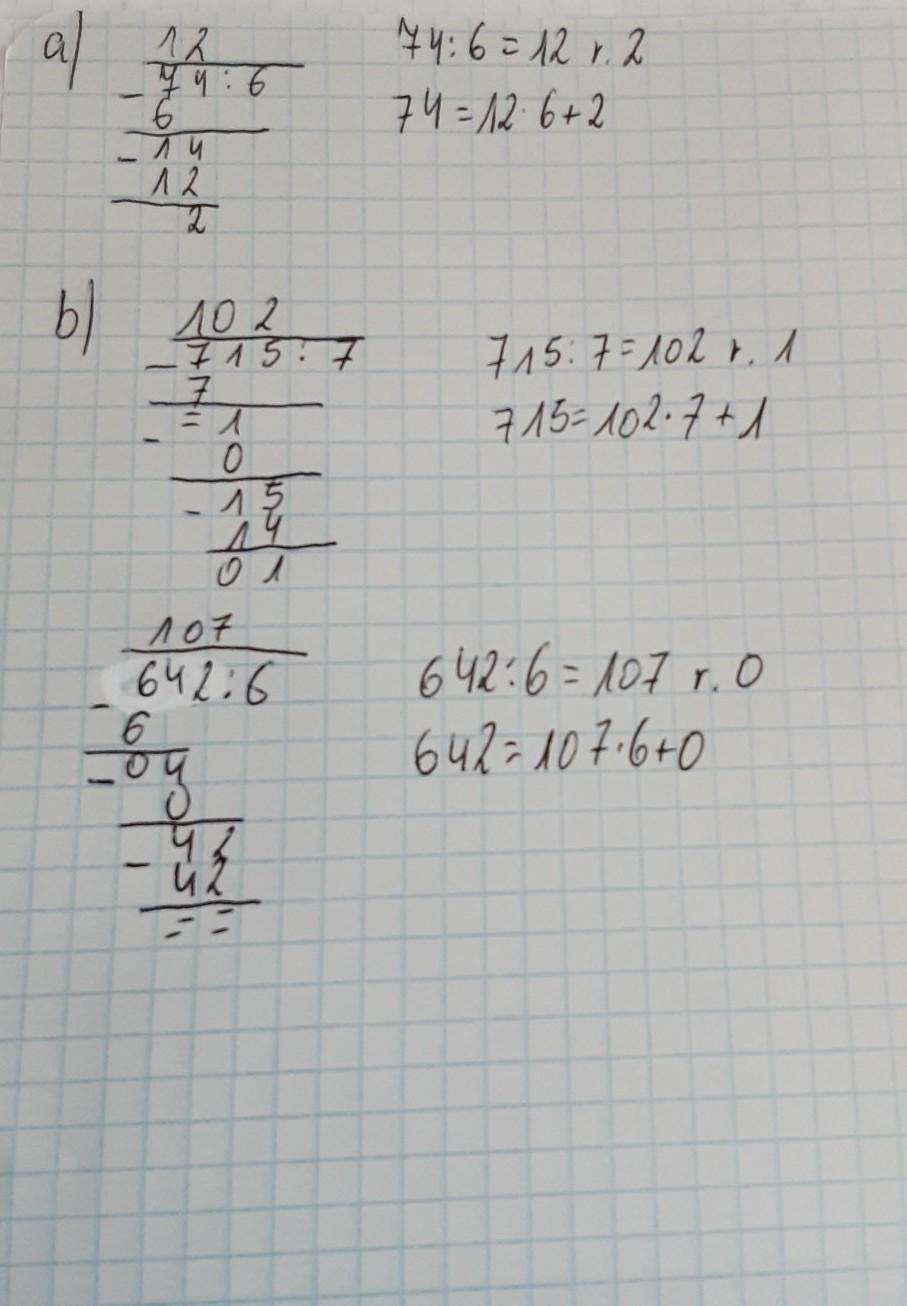 a)
12
- 74:6
6
- 14
12
2
74:6=12 r. 2
74=12·6+2
b)
102
- 715:7
7
- =1
0
- 15
14
01
715:7=102 r. 1
715=102·7+1
107
- 642:6
6
- 04
0
- 42
42
= =
642:6=107 r. 0
642=107·6+0